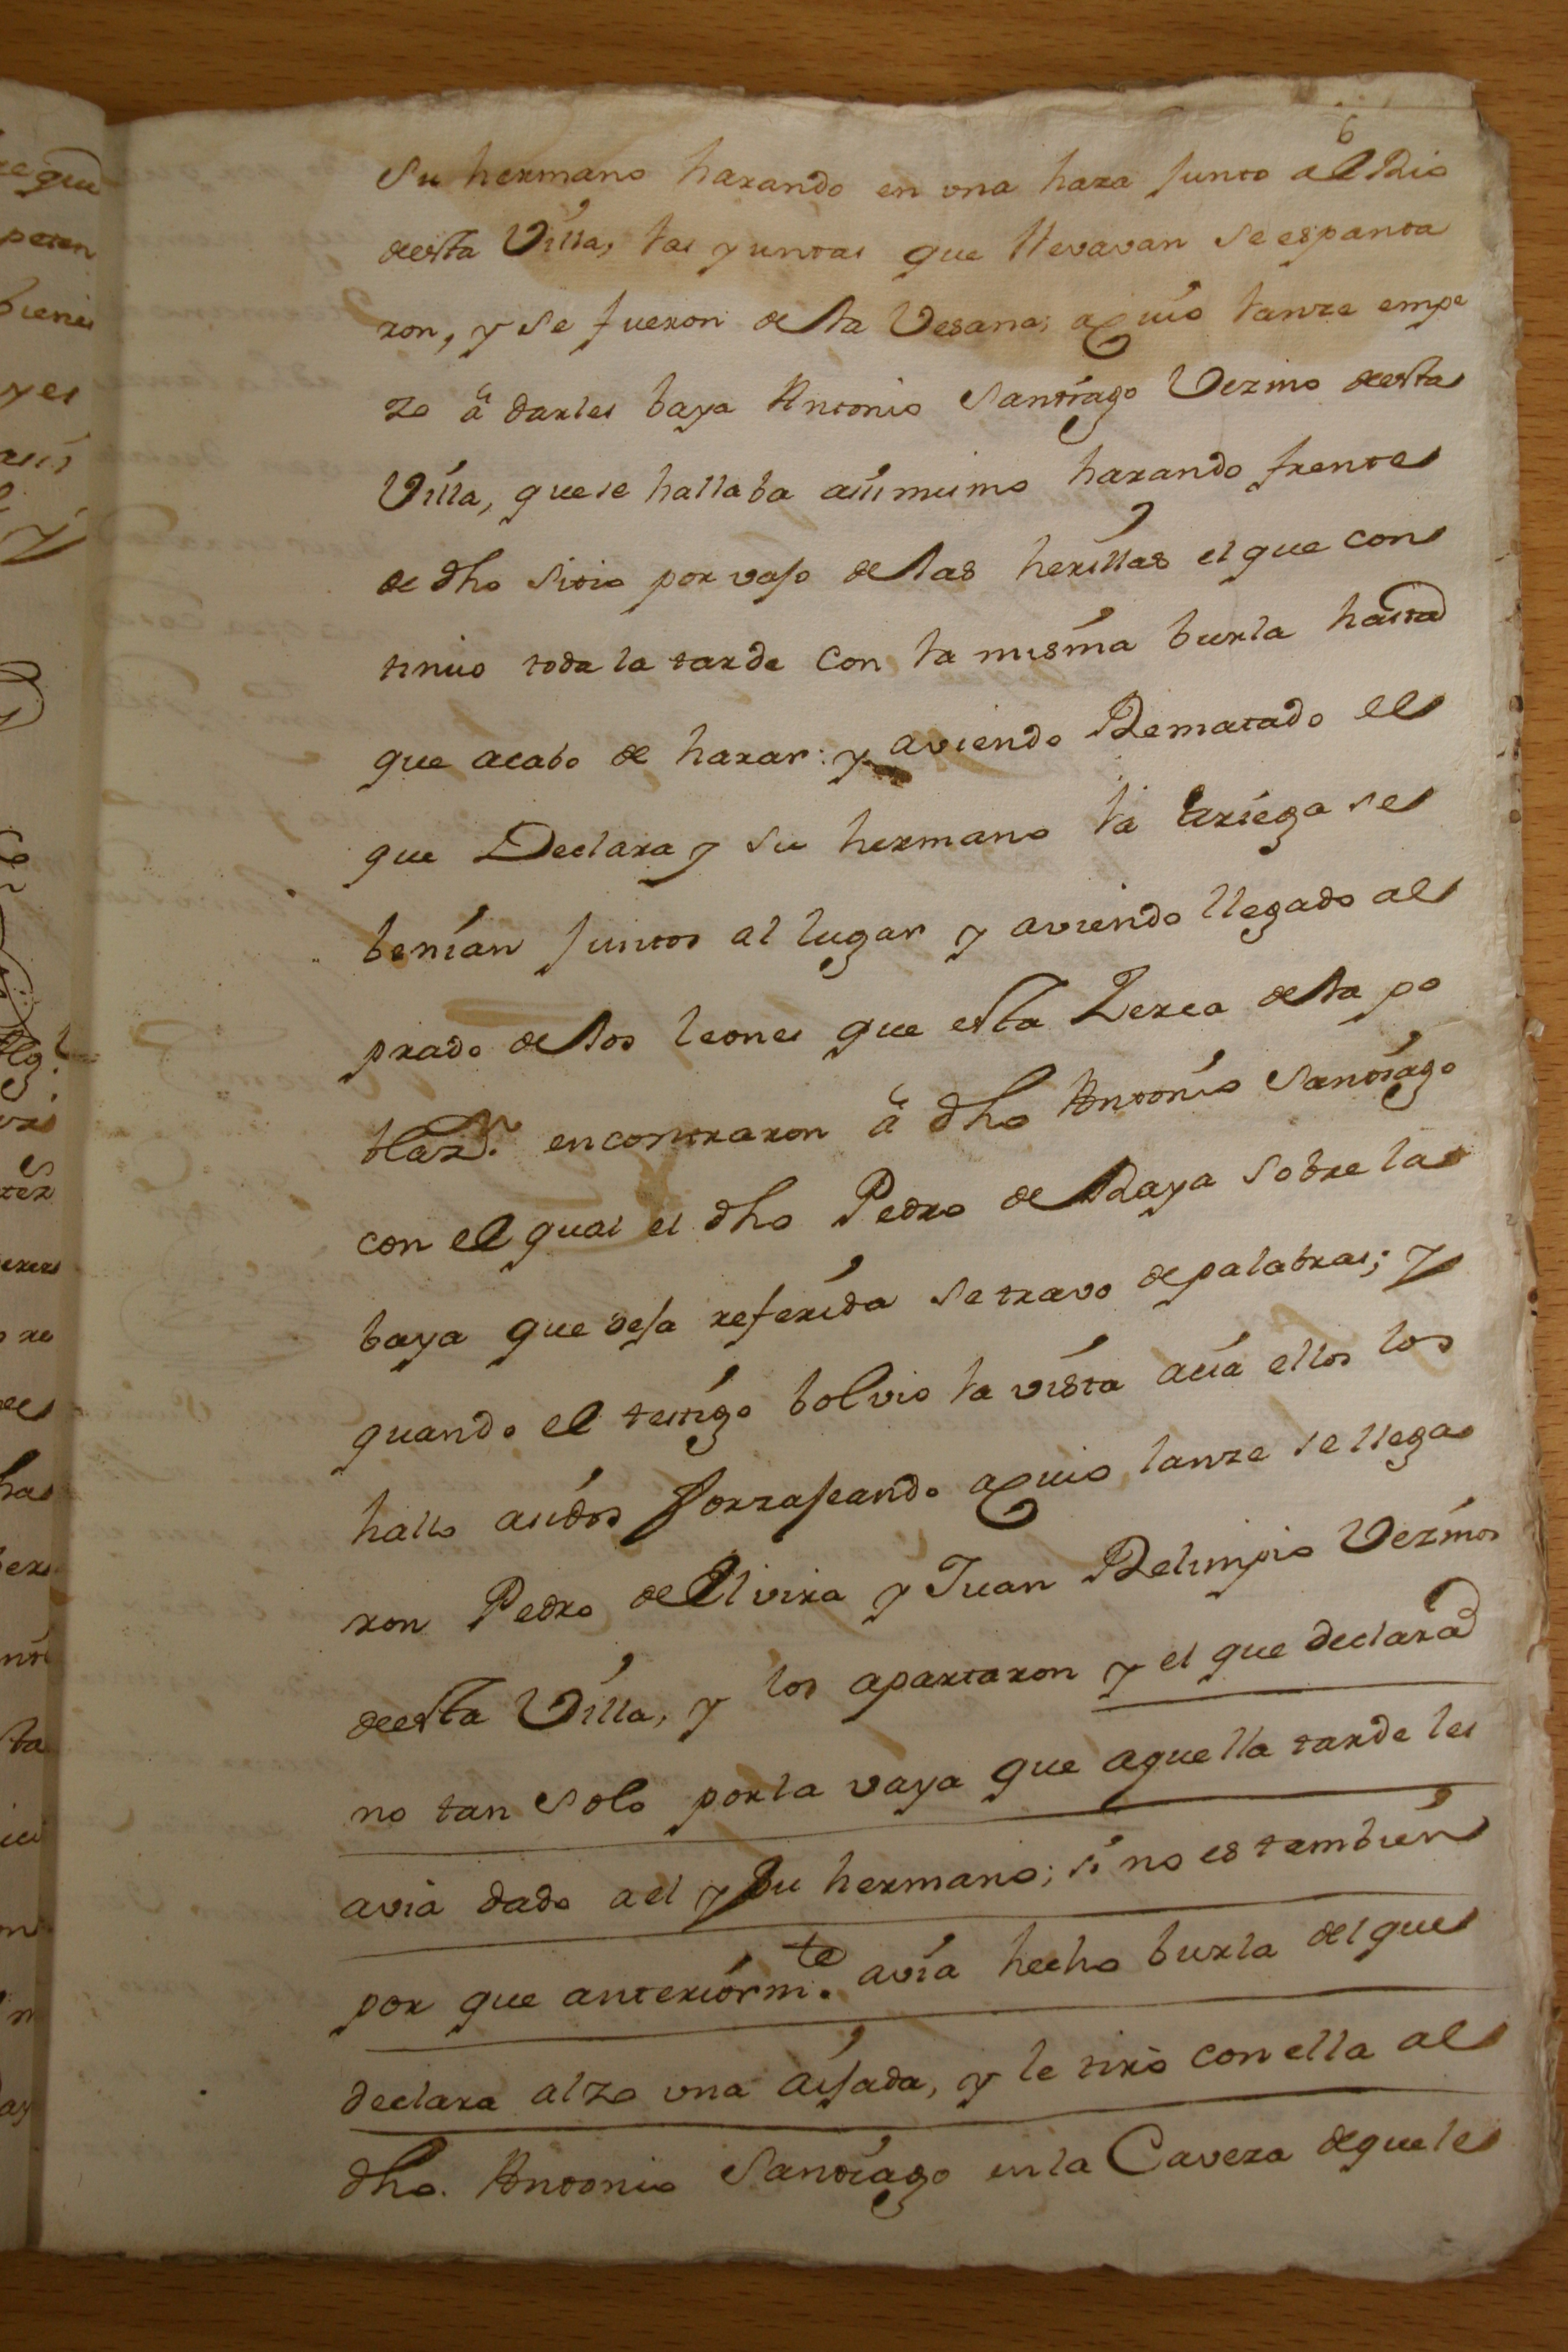 6
Su hermano harando en una haza junto al Rio
desta Villa, las yuntas que llevavan se espanta
ron, y se fueron de la Vesana; a cuio lanze empe
zo â darles baya Antonio Santiago Vezino desta
Villa, que se hallaba asimismo harando frente
de dho sitio por vajo de las herillas el que con
tinuo toda la tarde con la misma burla hasta
que acabo de harar: y aviendo Rematado el
que Declara y su hermano la ariega se
benian juntos al lugar y aviendo llegado al
prado de los leones que esta Zerca de la po
blazn. encontraron â dho Antonio Santiago
con el qual el dho Pedro de Raya sobre la
baya que deja referida se travo de palabras; y
quando el testigo bolvio la vista acia ellos los
hallo asidos forzajeando a cuio lanze se llega
ron Pedro de Elvira y Juan Relimpio Vezinos
desta Villa, y los apartaron y el que declara
no tan solo por la vaya que aquella tarde les
avia dado a el y su hermano; si no es tambien
por que anteriormte. avia hecho burla del que
declara alzo una aijada, y le tirò con ella al
dho. Antonio Santiago en la Caveza de que le